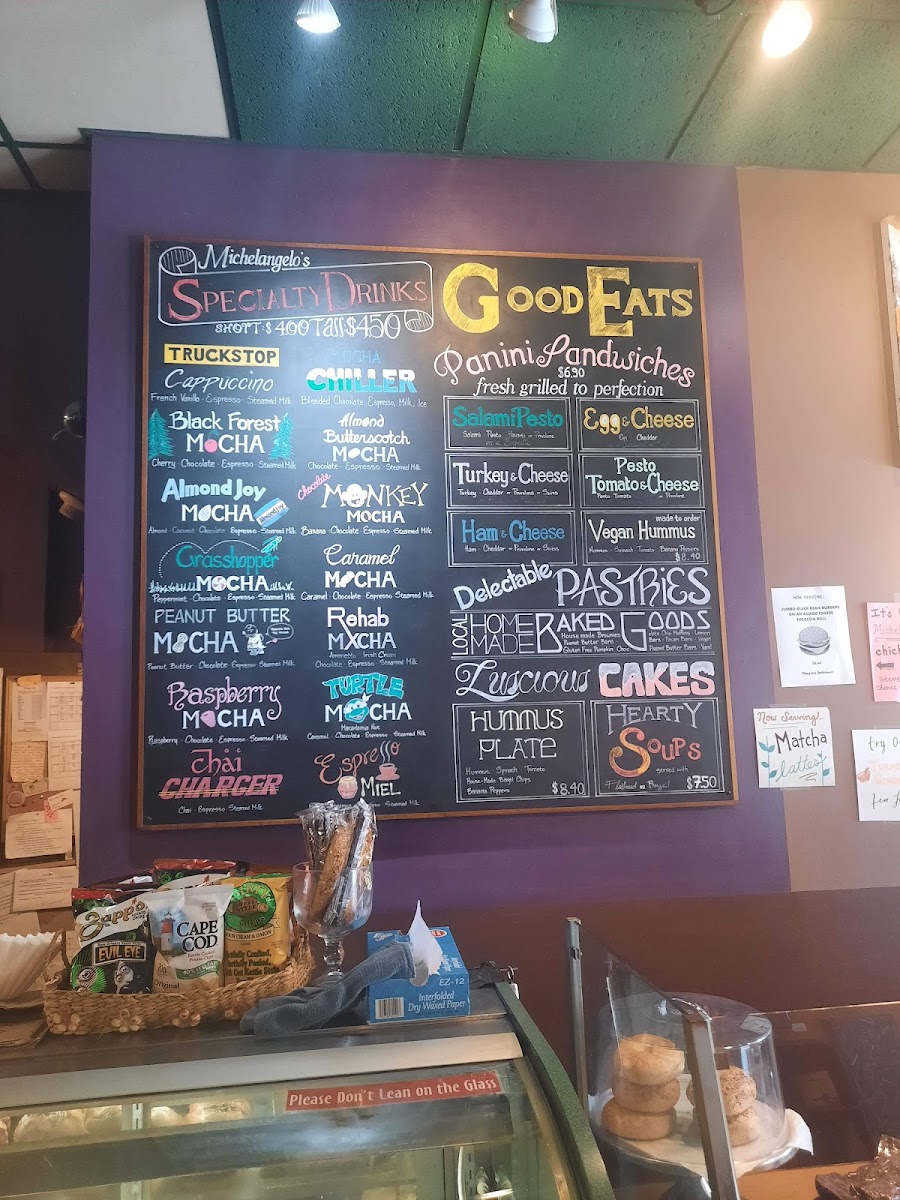 Michelangelo's
SPECIALTY DRINKS
SHORT $4.00 Tall $4.50
TRUCKSTOP
Cappuccino
French Vanilla · Espresso Steamed Milk
Black Forest
MOCHA
Cherry · Chocolate · Espresso · Steamed Milk
Almond Joy
MOCHA
Almond · Coconut · Chocolate · Espresso · Steamed Milk
Grasshopper
MOCHA
Peppermint · Chocolate · Espresso Steamed Milk
PEANUT BUTTER
MOCHA
Peanut Butter · Chocolate · Espresso Steamed Milk
Raspberry
MOCHA
Raspberry · Chocolate · Espresso · Steamed Milk
Chai
CHARGER
Chai · Espresso Steamed Milk
MOCHA
CHILLER
Blended Chocolate, Espresso, Milk, Ice
Almond
Butterscotch
MOCHA
Chocolate · Espresso · Steamed Milk
Chocolate
MONKEY
MOCHA
Banana · Chocolate · Espresso · Steamed Milk
Caramel
MOCHA
Caramel · Chocolate · Espresso · Steamed Milk
Rehab
MXCHA
Amaretto · Irish Cream
Chocolate · Espresso · Steamed Milk
TURTLE
MOCHA
Macadamia Nut
Caramel · Chocolate · Espresso · Steamed Milk
Espresso
MIEL
Steamed Milk
GOOD EATS
Panini Sandwiches
$6.90
fresh grilled to perfection
Salami Pesto
Salami · Pesto · Havarti or Provolone
on a Baguette
Egg & Cheese
Egg · Cheddar
Turkey & Cheese
Turkey · Cheddar or Provolone or Swiss
Pesto
Tomato & Cheese
Pesto Tomato or Provolone
Ham & Cheese
Ham · Cheddar or Provolone or Swiss
made to order
Vegan Hummus
Hummus · Spinach · Tomato · Banana Peppers
$8.40
Delectable PASTRIES
LOCAL HOME MADE BAKED GOODS
House made Brownies
Peanut Butter Bars
Gluten Free Pumpkin Choc
olate Chip Muffins · Lemon
Bars · Pecan Bars · Vegan
Peanut Butter Bars · Yum!
Luscious CAKES
HUMMUS
PLATE
Hummus · Spinach · Tomato
House-Made Bagel Chips
Banana Peppers
$8.40
HEARTY
SOUPS
served with
Flatbread or Bagel
$7.50
NOW SERVING:
JUMBO BLACK BEAN BURGERS
ON AN ASIAGO CHEESE
FOCACCIA ROLL
They are Delicious!
Now Serving
Matcha
lattes
It's
chic
try O
for
Zapp's
EVIL EYE
CAPE
COD
Kettle Cooked
Potato Chips
Original
SOUR CREAM & ONION
EZ-12
Interfolded
Dry Waxed Paper
Please Don't Lean on the Glass